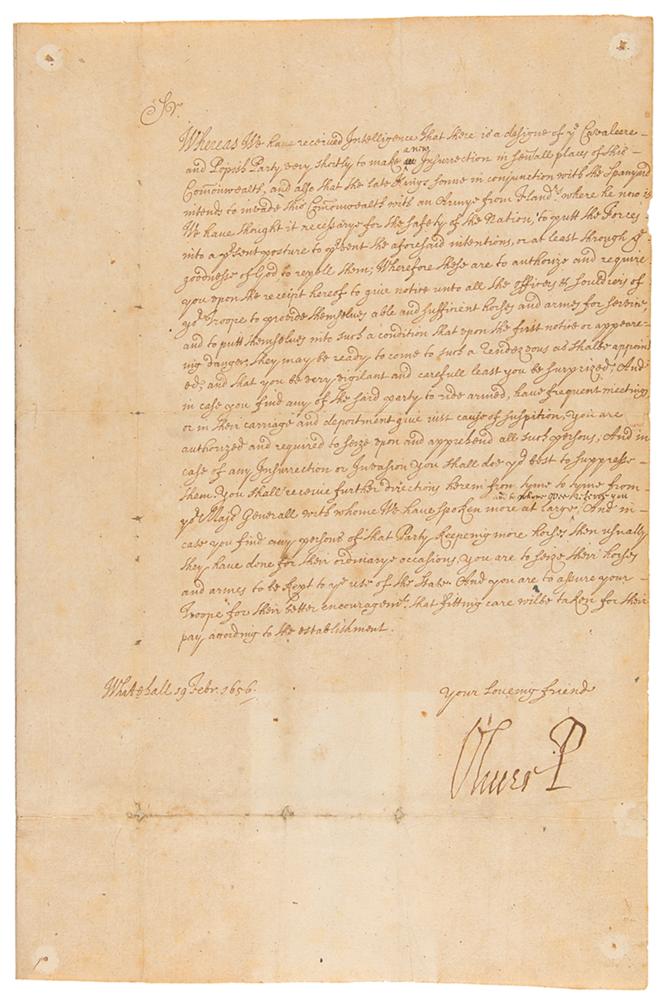 Sr.
Whereas We have received Intelligence That there is a designe of ye Cavaleere
and Popish Party very shortly to make anew Insurrection in sevall places of this
Comonwealth, and also that the late Kings sonne in conjunction with the Spaniard
intends to invade this Comonwealth with an Army from Fland.rs where he now is
We have thought it necessary for the safety of the Nation, to putt the Forces
into a psent posture to pvent the aforesaid intentions, or at least through ye
goodness of God to repell them; Wherefore these are to authorize and require
you upon the receipt hereof to give notice unto all the officers & souldiers of
yor Troope to provide themselves able and sufficient horses and armes for service,
and to putt themselves into such a condition that upon the first notice or appeare-
ing danger, they may be ready to come to such a Rendezvous as shalbe appoint
ed, and that you be very vigilant and carefull least you be surprized, And
in case you find any of the said party to ride armed, have frequent meetings
or in their carriage and department give iust cause of suspition, you are
authorized and required to seize upon and apprehend all such persons, And in
case of any Insurrection or Invasion you shall doe yor best to suppresse
them. You shall receive further directions herein from tyme to tyme from
yor Major Generall with whome We have spoken more at large, And in
case you find any persons of that Party keepeing more horses then usually
they have done for their ordinary occasions, you are to seize their horses
and armes to be kept to ye use of the State And you are to assure your
Troope for their better encouragemt. that fitting care wilbe taken for their
pay according to the establishment.
Whitehall 19 Febr. 1656.
Your loveing friend
Oliver P